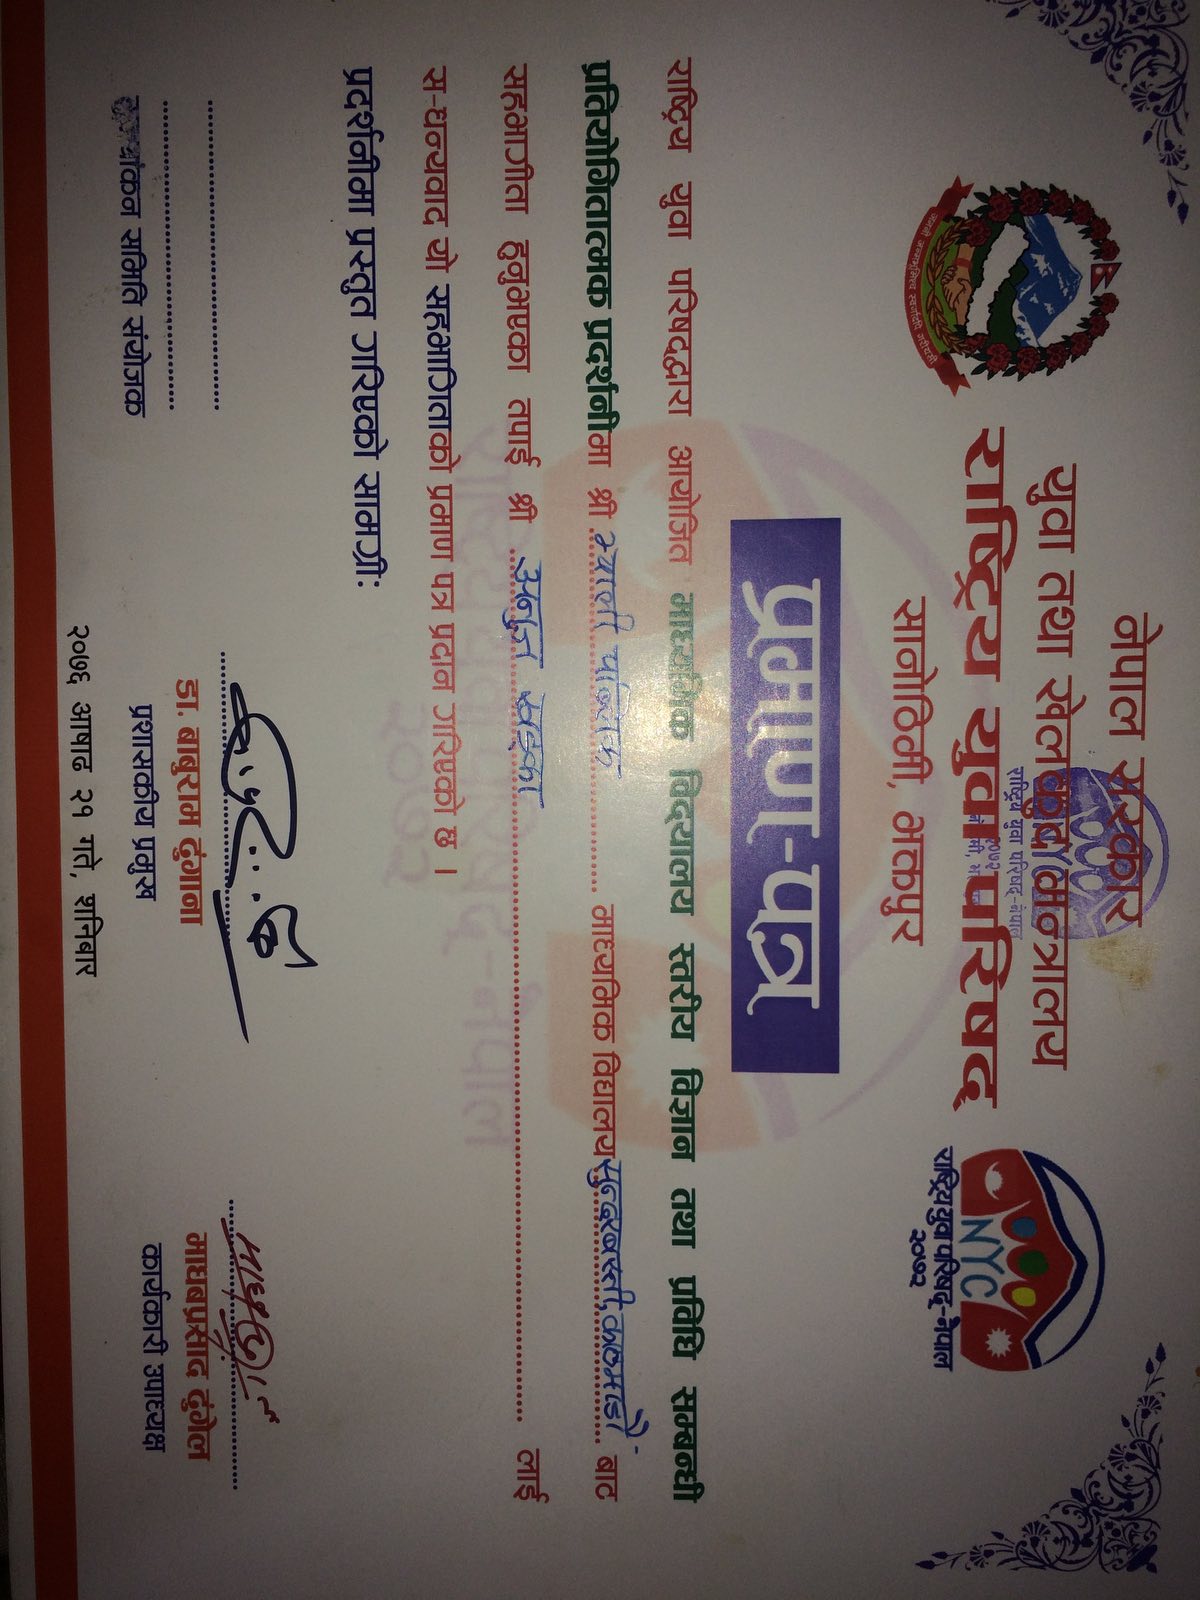 नेपाल सरकार
युवा तथा खेलकुद मन्त्रालय
राष्ट्रिय युवा परिषद्
सानोठिमी, भक्तपुर
जननी जन्मभूमिश्च स्वर्गादपि गरीयसी
NYC
राष्ट्रिय युवा परिषद्-नेपाल
२०७२
राष्ट्रिय युवा परिषद्-नेपाल
२०७२
प्रमाण-पत्र
राष्ट्रिय युवा परिषद्द्वारा आयोजित माध्यमिक विद्यालय स्तरीय विज्ञान तथा प्रविधि सम्बन्धी
प्रतियोगितात्मक प्रदर्शनीमा श्री भ्याली पब्लिक माध्यमिक विद्यालय सुन्दरबस्ती, काठमाडौं बाट
सहभागीता हुनुभएका तपाई श्री अनुज खड्का लाई
स-धन्यवाद यो सहभागिताको प्रमाण पत्र प्रदान गरिएको छ ।
राष्ट्रिय युवा परिषद्-नेपाल
२०७२
प्रदर्शनीमा प्रस्तुत गरिएको सामग्री:
डा. बाबुराम ढुंगाना
प्रशासकीय प्रमुख
माधबप्रसाद ढुंगेल
कार्यकारी उपाध्यक्ष
समिति संयोजक
२०७६ आषाढ २१ गते, शनिबार